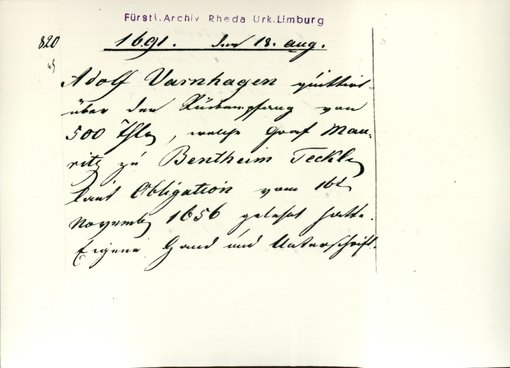 Fürstl.Archiv Rheda Urk.Limburg
820
1691. den 18. aug.
Adolf Varnhagen quittirt
über den Rückempfang von
500 Thlr, welche Graf Mau-
ritz zu Bentheim Teckl.
laut Obligation vom 16t
November 1656 gelehnt hatte.
Eigene Hand und Unterschrift.